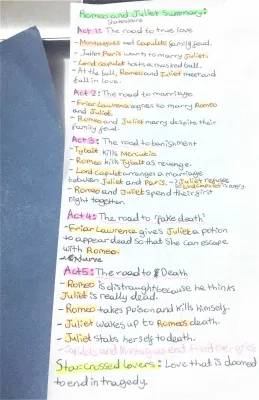 Romeo and Juliet Summary:
Shakespeare
Act 1: The road to true love
- Montagues and Capulets family feud.
- Paris wants to marry Juliet.
- Lord Capulet hosts a masked ball.
- At the ball, Romeo and Juliet meet and
fall in love.
Act 2: The road to marriage
- Friar Laurence agrees to marry Romeo
and Juliet.
- Romeo and Juliet marry despite their
family feud.
Act 3: The road to banishment
- Tybalt kills Mercutio.
- Romeo kills Tybalt as revenge.
- Lord Capulet arranges a marriage
between Juliet and Paris. → Juliet refuses
Lord Capulet is angry
- Romeo and Juliet spend their first
night together.
Act 4: The road to 'fake death'
- Friar Lawrence gives Juliet a potion
to appear dead so that she can escape
with Romeo.
Nurse
Act 5: The road to Death
- Romeo is distraught because he thinks
Juliet is really dead.
- Romeo takes poison and kills himself.
- Juliet wakes up to Romeos death.
- Juliet stabs herself to death.
- Capulets and Montagues end their
Star-crossed lovers: Love that is doomed
to end in tragedy.